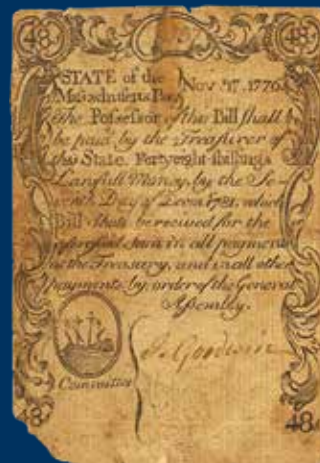 48 48
STATE of the Nov 17. 1776
Massachusetts Bay
The Possessor of this Bill shall
be paid by the Treasurer of
this State. Forty eight shillings
Lawfull Money, by the Se-
venth Day of Decm. 1781. which
Bill shall be received for the
aforesaid Sum in all payments
at the Treasury, and in all other
payments by order of the General
Assembly.
Committee
48 48